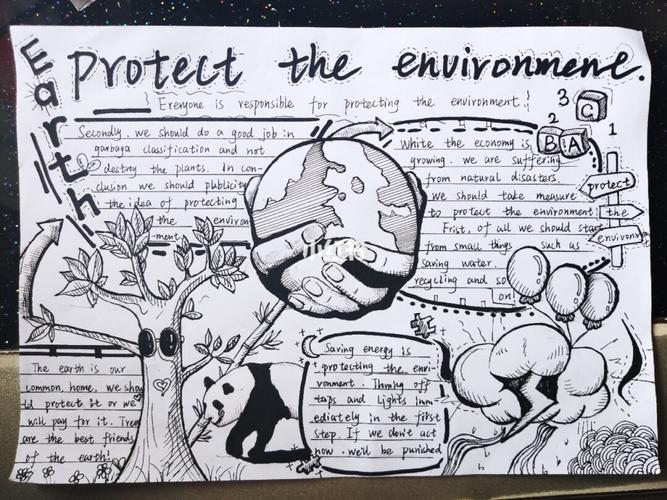 Earth
Protect the environmene.
Ereryone is responsible for protecting the environment!
Secondly, we should do a good job in
garbaga classification and not
destroy the plants. In con-
clusion we should publicity
the idea of protecting
the environ
-ment.
White the economy is
growing. we are suffering
from natural disasters.
we should take measure
to protect the environment!
Frist, of all we should start
from small things such as
saving water.
recycling and so
on!
3
C
2
B A
1
protect
the
environment
小红书
The earth is our
common, home, we shou
ld protect it or we
will pay for it. Trees
are the best friends
of the earth!
Saving energy is
protecting the envi-
vonment. Thrning off
taps and lights Imm
ediately in the first
step. If we don't act
now. we'll be punished